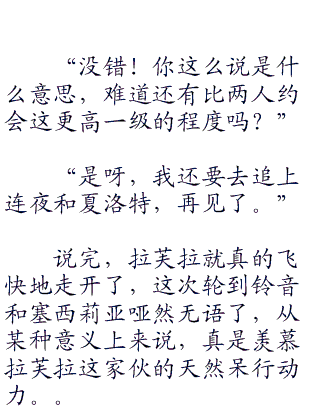 “没错！你这么说是什
么意思，难道还有比两人约
会这更高一级的程度吗？”
“是呀，我还要去追上
连夜和夏洛特，再见了。”
说完，拉芙拉就真的飞
快地走开了，这次轮到铃音
和塞西莉亚哑然无语了，从
某种意义上来说，真是羡慕
拉芙拉这家伙的天然呆行动
力。。